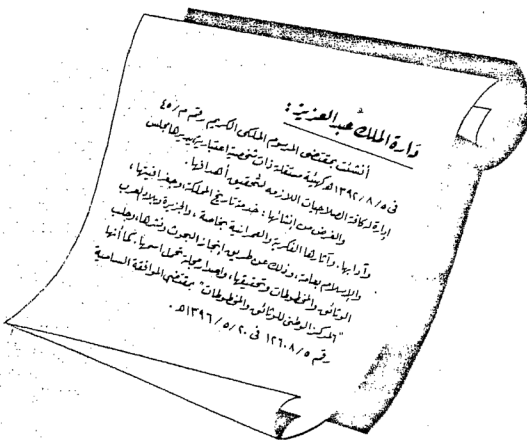 دارة الملك عبدالعزيز:
أنشئت بمقتضى المرسوم الملكي الكريم رقم م/٤٥
في ١٣٩٢/٨/٥هـ كهيئة مستقلة ذات شخصية اعتبارية يديرها مجلس
إدارة له كافة الصلاحيات اللازمة لتحقيق أهدافها.
والغرض من إنشائها: خدمة تاريخ المملكة، وجغرافيتها،
وآدابها. وآثارها الفكرية والعمرانية بخاصة، والجزيرة وبلاد العرب
والإسلام بعامة، وذلك عن طريق إنجاز البحوث ونشرها، وجلب
الوثائق والمخطوطات وتحقيقها، وإصدار مجلة تحمل اسمها. كما أنها
"المركز الوطني للوثائق والمخطوطات" بمقتضى الموافقة السامية
رقم ١٢٦٠٨/٥ في ١٣٩٦/٥/٢٠هـ.